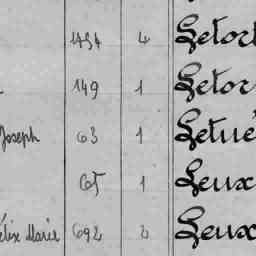 1434 4 Letort
149 1 Letor
Joseph 63 1 Letué
65 1 Leux
élix Marie 692 2 Leux